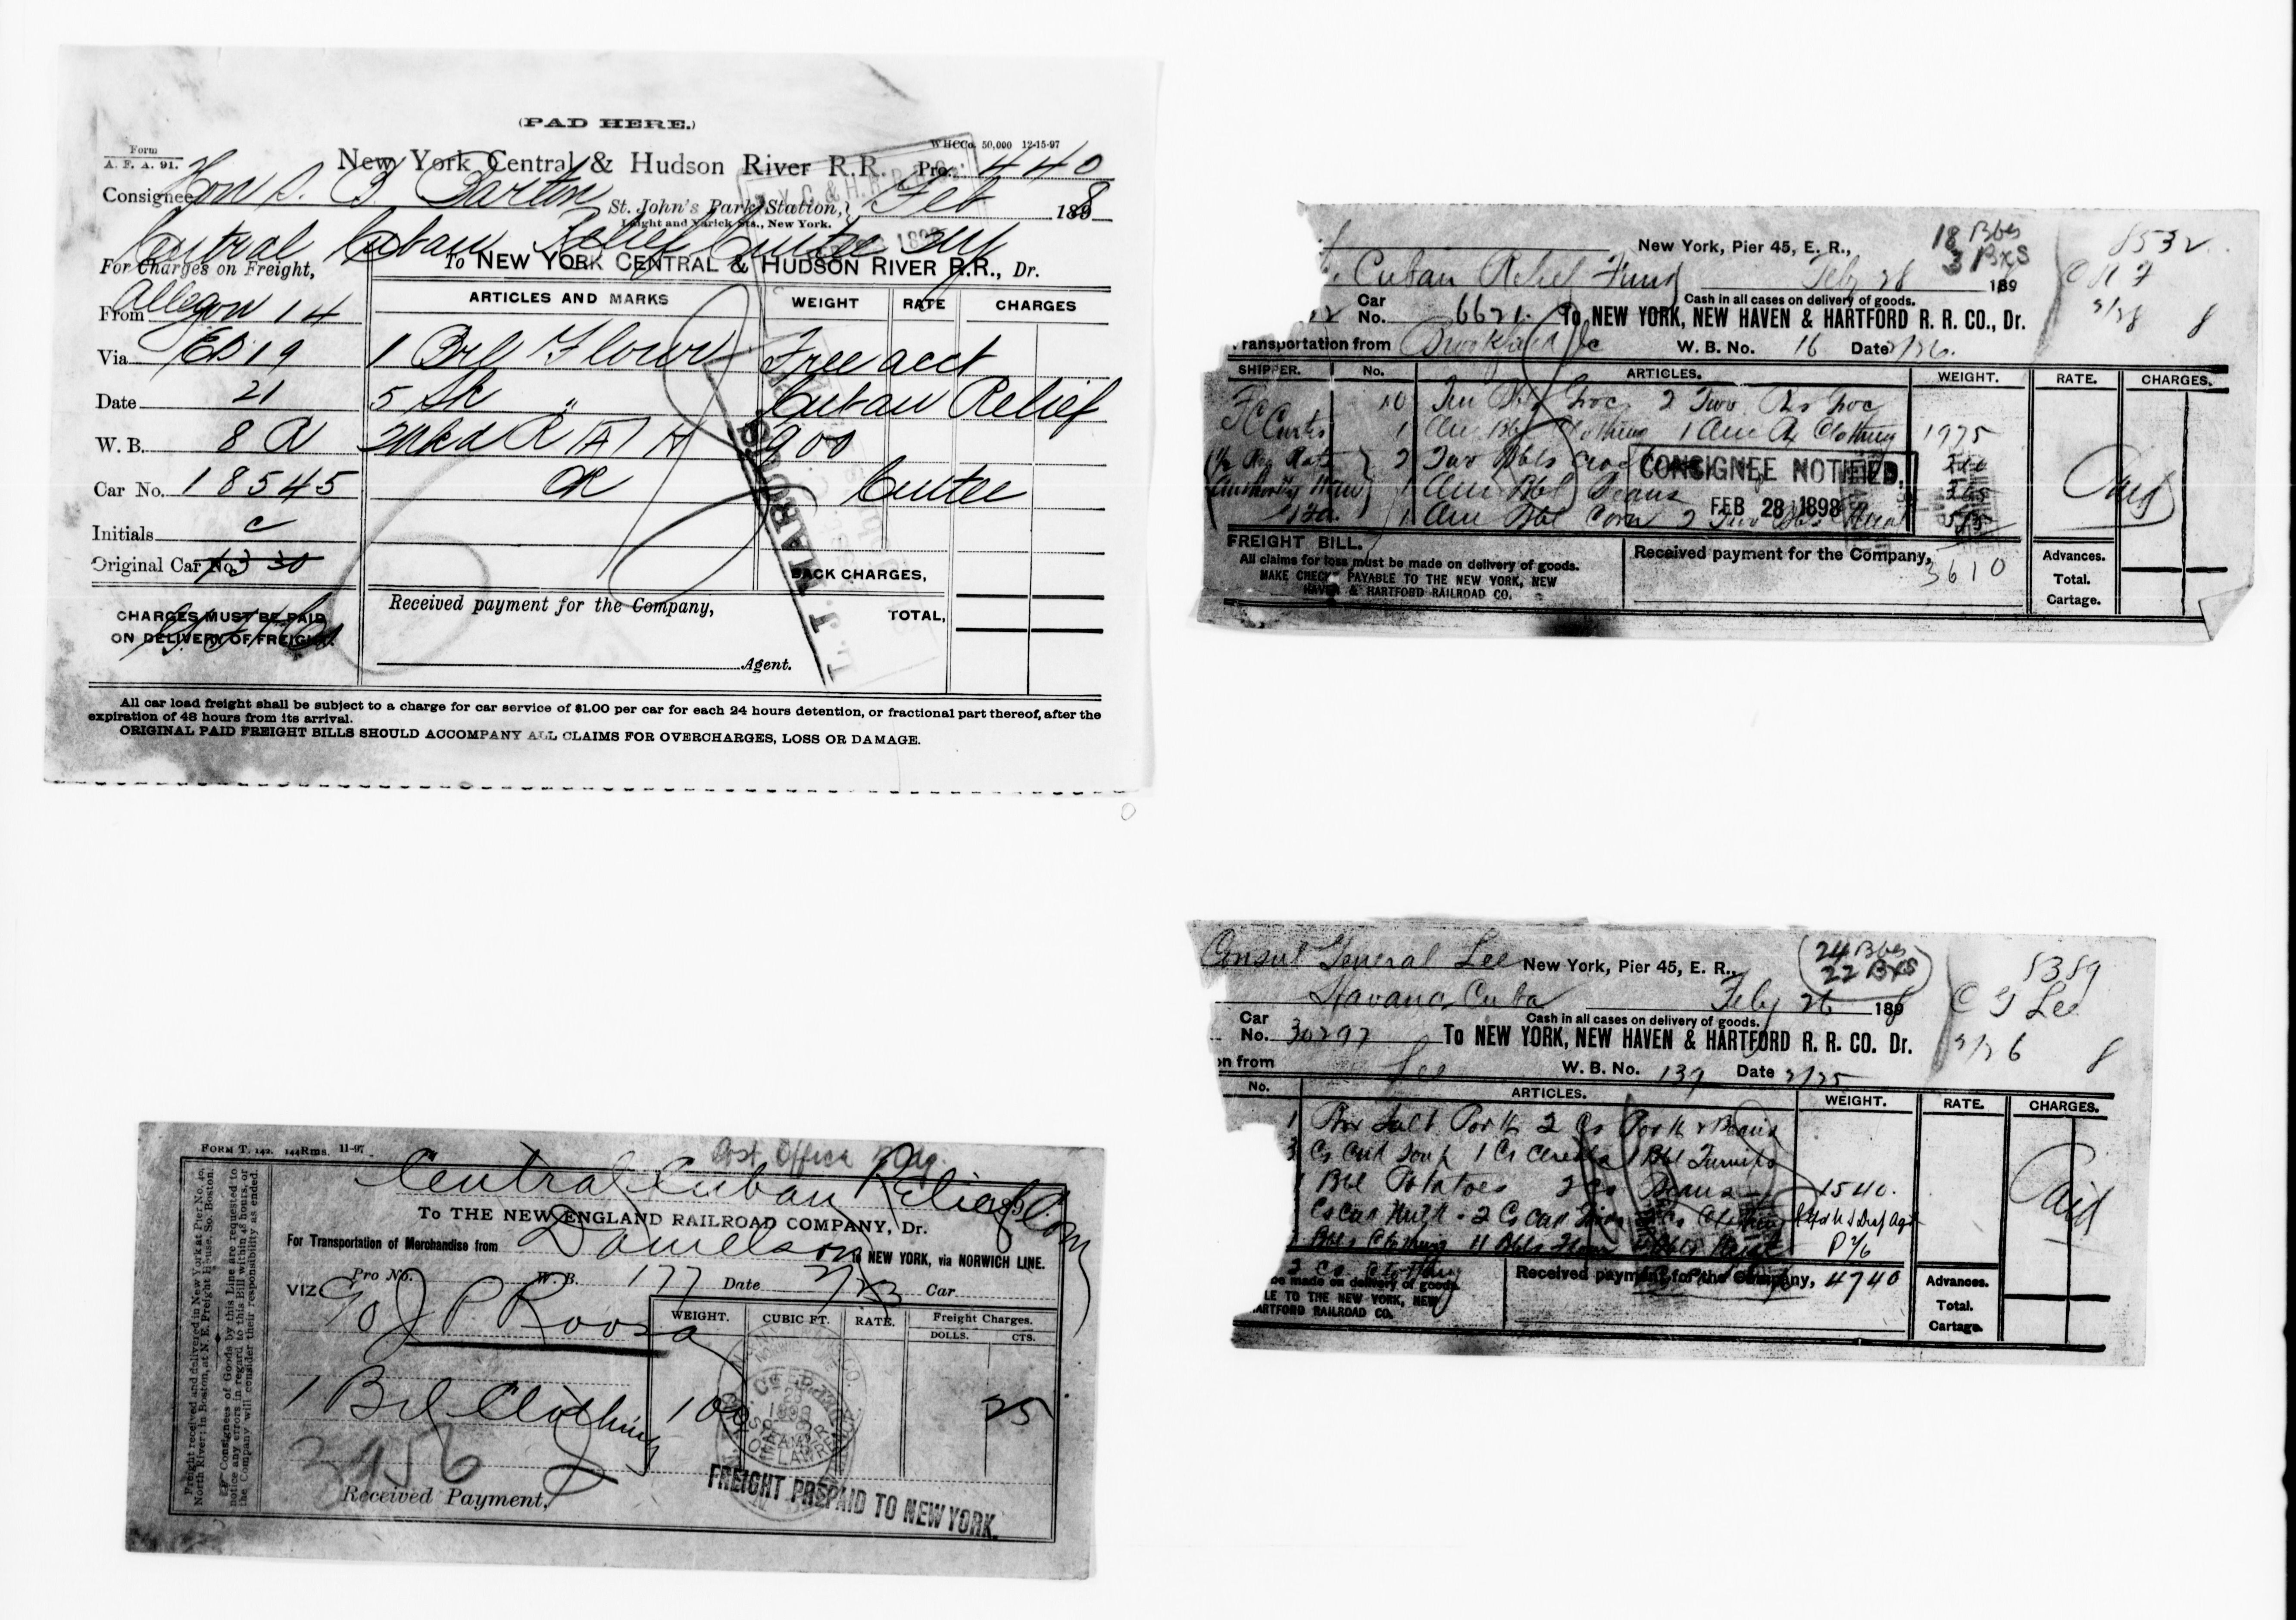 (PAD HERE.)
Form
A. F. A. 91.
W HCCo. 50,000 12-15-97
New York Central & Hudson River R.R. Pro. 440
Consignee Hon S. B. Barton
St. John's Park Station, Feb 1898
Laight and Varick Sts., New York.
Central Cuban Relief Cmtee NY
For Charges on Freight,
To NEW YORK CENTRAL & HUDSON RIVER R.R., Dr.
From Allegan 14
ARTICLES AND MARKS WEIGHT RATE CHARGES
Via ED 19 1 Brl Flour Free acct
Date 21 5 Sk " Cuban Relief
W. B. 8 900
Car No. 18545 Cmtee
Initials C
Original Car No.
BACK CHARGES,
CHARGES MUST BE PAID
ON DELIVERY OF FREIGHT.
Received payment for the Company,
TOTAL,
Agent.
All car load freight shall be subject to a charge for car service of $1.00 per car for each 24 hours detention, or fractional part thereof, after the
expiration of 48 hours from its arrival.
ORIGINAL PAID FREIGHT BILLS SHOULD ACCOMPANY ALL CLAIMS FOR OVERCHARGES, LOSS OR DAMAGE.
New York, Pier 45, E. R., 18 Bbs 8532
3 Bxs
Cuban Relief Fund Feby 28 189 C R F
Cash in all cases on delivery of goods.
Car No. 6621 To NEW YORK, NEW HAVEN & HARTFORD R. R. CO., Dr. 2/28 8
ransportation from W. B. No. 16 Date 2/26
SHIPPER. No. ARTICLES. WEIGHT. RATE. CHARGES.
10 Ten Bbls Groc 2 Two Bxs Groc
F C Curtis 1 One Bbl Clothing 1 One Bx Clothing 1975
2 Two Bbls Paid
1 One Bbl Beans
1 One Bbl Corn 2 Two Bbls
CONSIGNEE NOTIFIED.
FEB 28 1898
FREIGHT BILL.
All claims for loss must be made on delivery of goods.
MAKE CHECKS PAYABLE TO THE NEW YORK, NEW
HAVEN & HARTFORD RAILROAD CO.
Received payment for the Company, 3610
Advances.
Total.
Cartage.
Consul General Lee New York, Pier 45, E. R., 24 Bbs 8389
22 Bxs
Havana Cuba Feby 26 1898 C G Lee
Cash in all cases on delivery of goods.
Car No. 30297 To NEW YORK, NEW HAVEN & HARTFORD R. R. CO. Dr. 2/26 8
on from Lee W. B. No. 137 Date 2/25
No. ARTICLES. WEIGHT. RATE. CHARGES.
1 Box Salt Pork 2 Cs Pork & Beans
3 Cs Cnd Soup 1 Cs Cereals 1 Bbl Turnips
1 Bbl Potatoes 2 Cs Beans 1540 Paid
Bbls Clothing 4 Bbls Flour
2 Cs Clothing
be made on delivery of goods.
LE TO THE NEW YORK, NEW
ARTFORD RAILROAD CO.
Received payment for the Company, 4740
Advances.
Total.
Cartage.
FORM T. 142. 144Rms. 11-97
Post Office Bldg.
Central Cuban Relief Com
To THE NEW ENGLAND RAILROAD COMPANY, Dr.
For Transportation of Merchandise from Danielson to NEW YORK, via NORWICH LINE.
Pro No. W. B. 177 Date 2/23 Car
VIZ J P Roosa
WEIGHT. CUBIC FT. RATE. Freight Charges.
DOLLS. CTS.
1 Brl Clothing 100 25
3956
FREIGHT PREPAID TO NEW YORK.
Received Payment,
Freight received and delivered in New York at Pier No. 40,
North River; in Boston, at N. E. Freight House, So. Boston.
Consignees of Goods by this Line are requested to
notice any errors in regard to this Bill within 48 hours, or
the Company will consider their responsibility as ended.